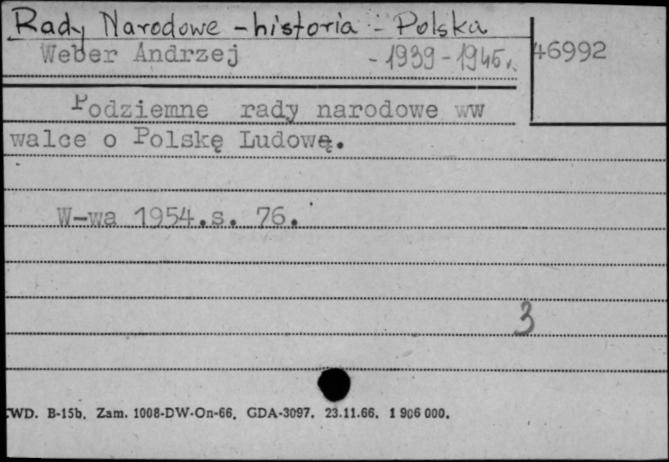 Rady Narodowe - historia - Polska
Weber Andrzej - 1939 - 1945 r. 46992
Podziemne rady narodowe ww
walce o Polskę Ludową.
W-wa 1954.s. 76.
3
WD. B-15b. Zam. 1008-DW-On-66. GDA-3097. 23.11.66. 1 906 000.